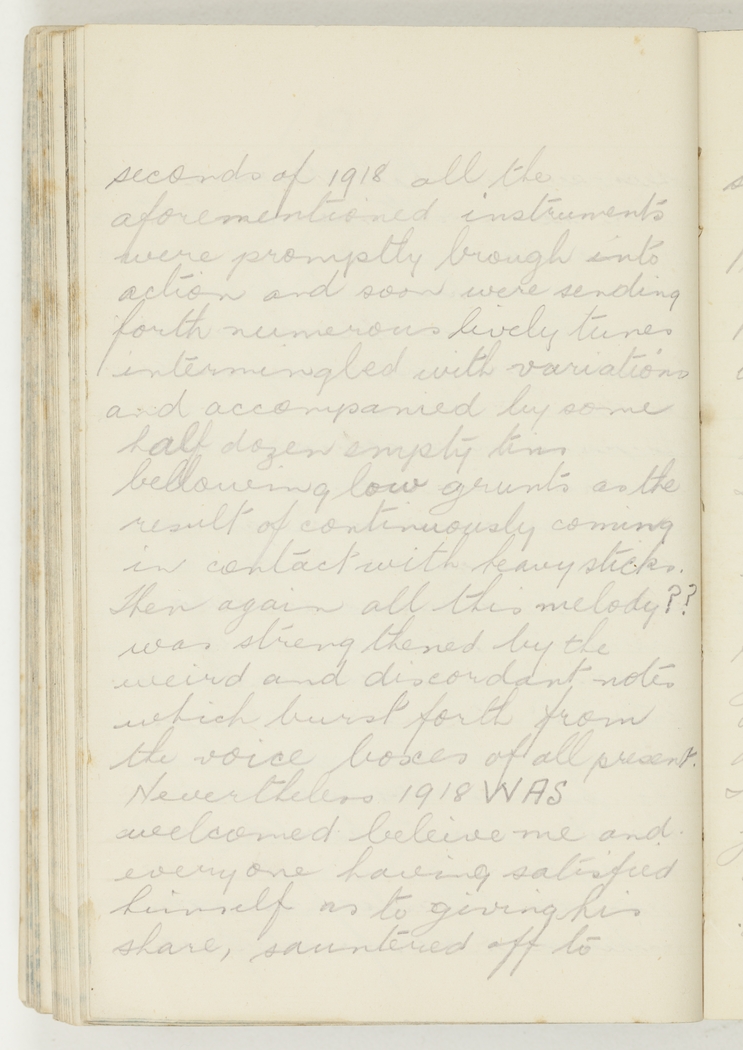 seconds of 1918 all the
aforementioned instruments
were promptly brough into
action and soon were sending
forth numerous lively tunes
intermingled with variations
and accompanied by some
half dozen empty tins
bellowing low grunts as the
result of continuously coming
in contact with heavy sticks.
Then again all this melody??
was strengthened by the
weird and discordant notes
which burst forth from
the voice boxes of all present.
Nevertheless 1918 WAS
welcomed beleive me and
everyone having satisfied
himself as to giving his
share, sauntered off to